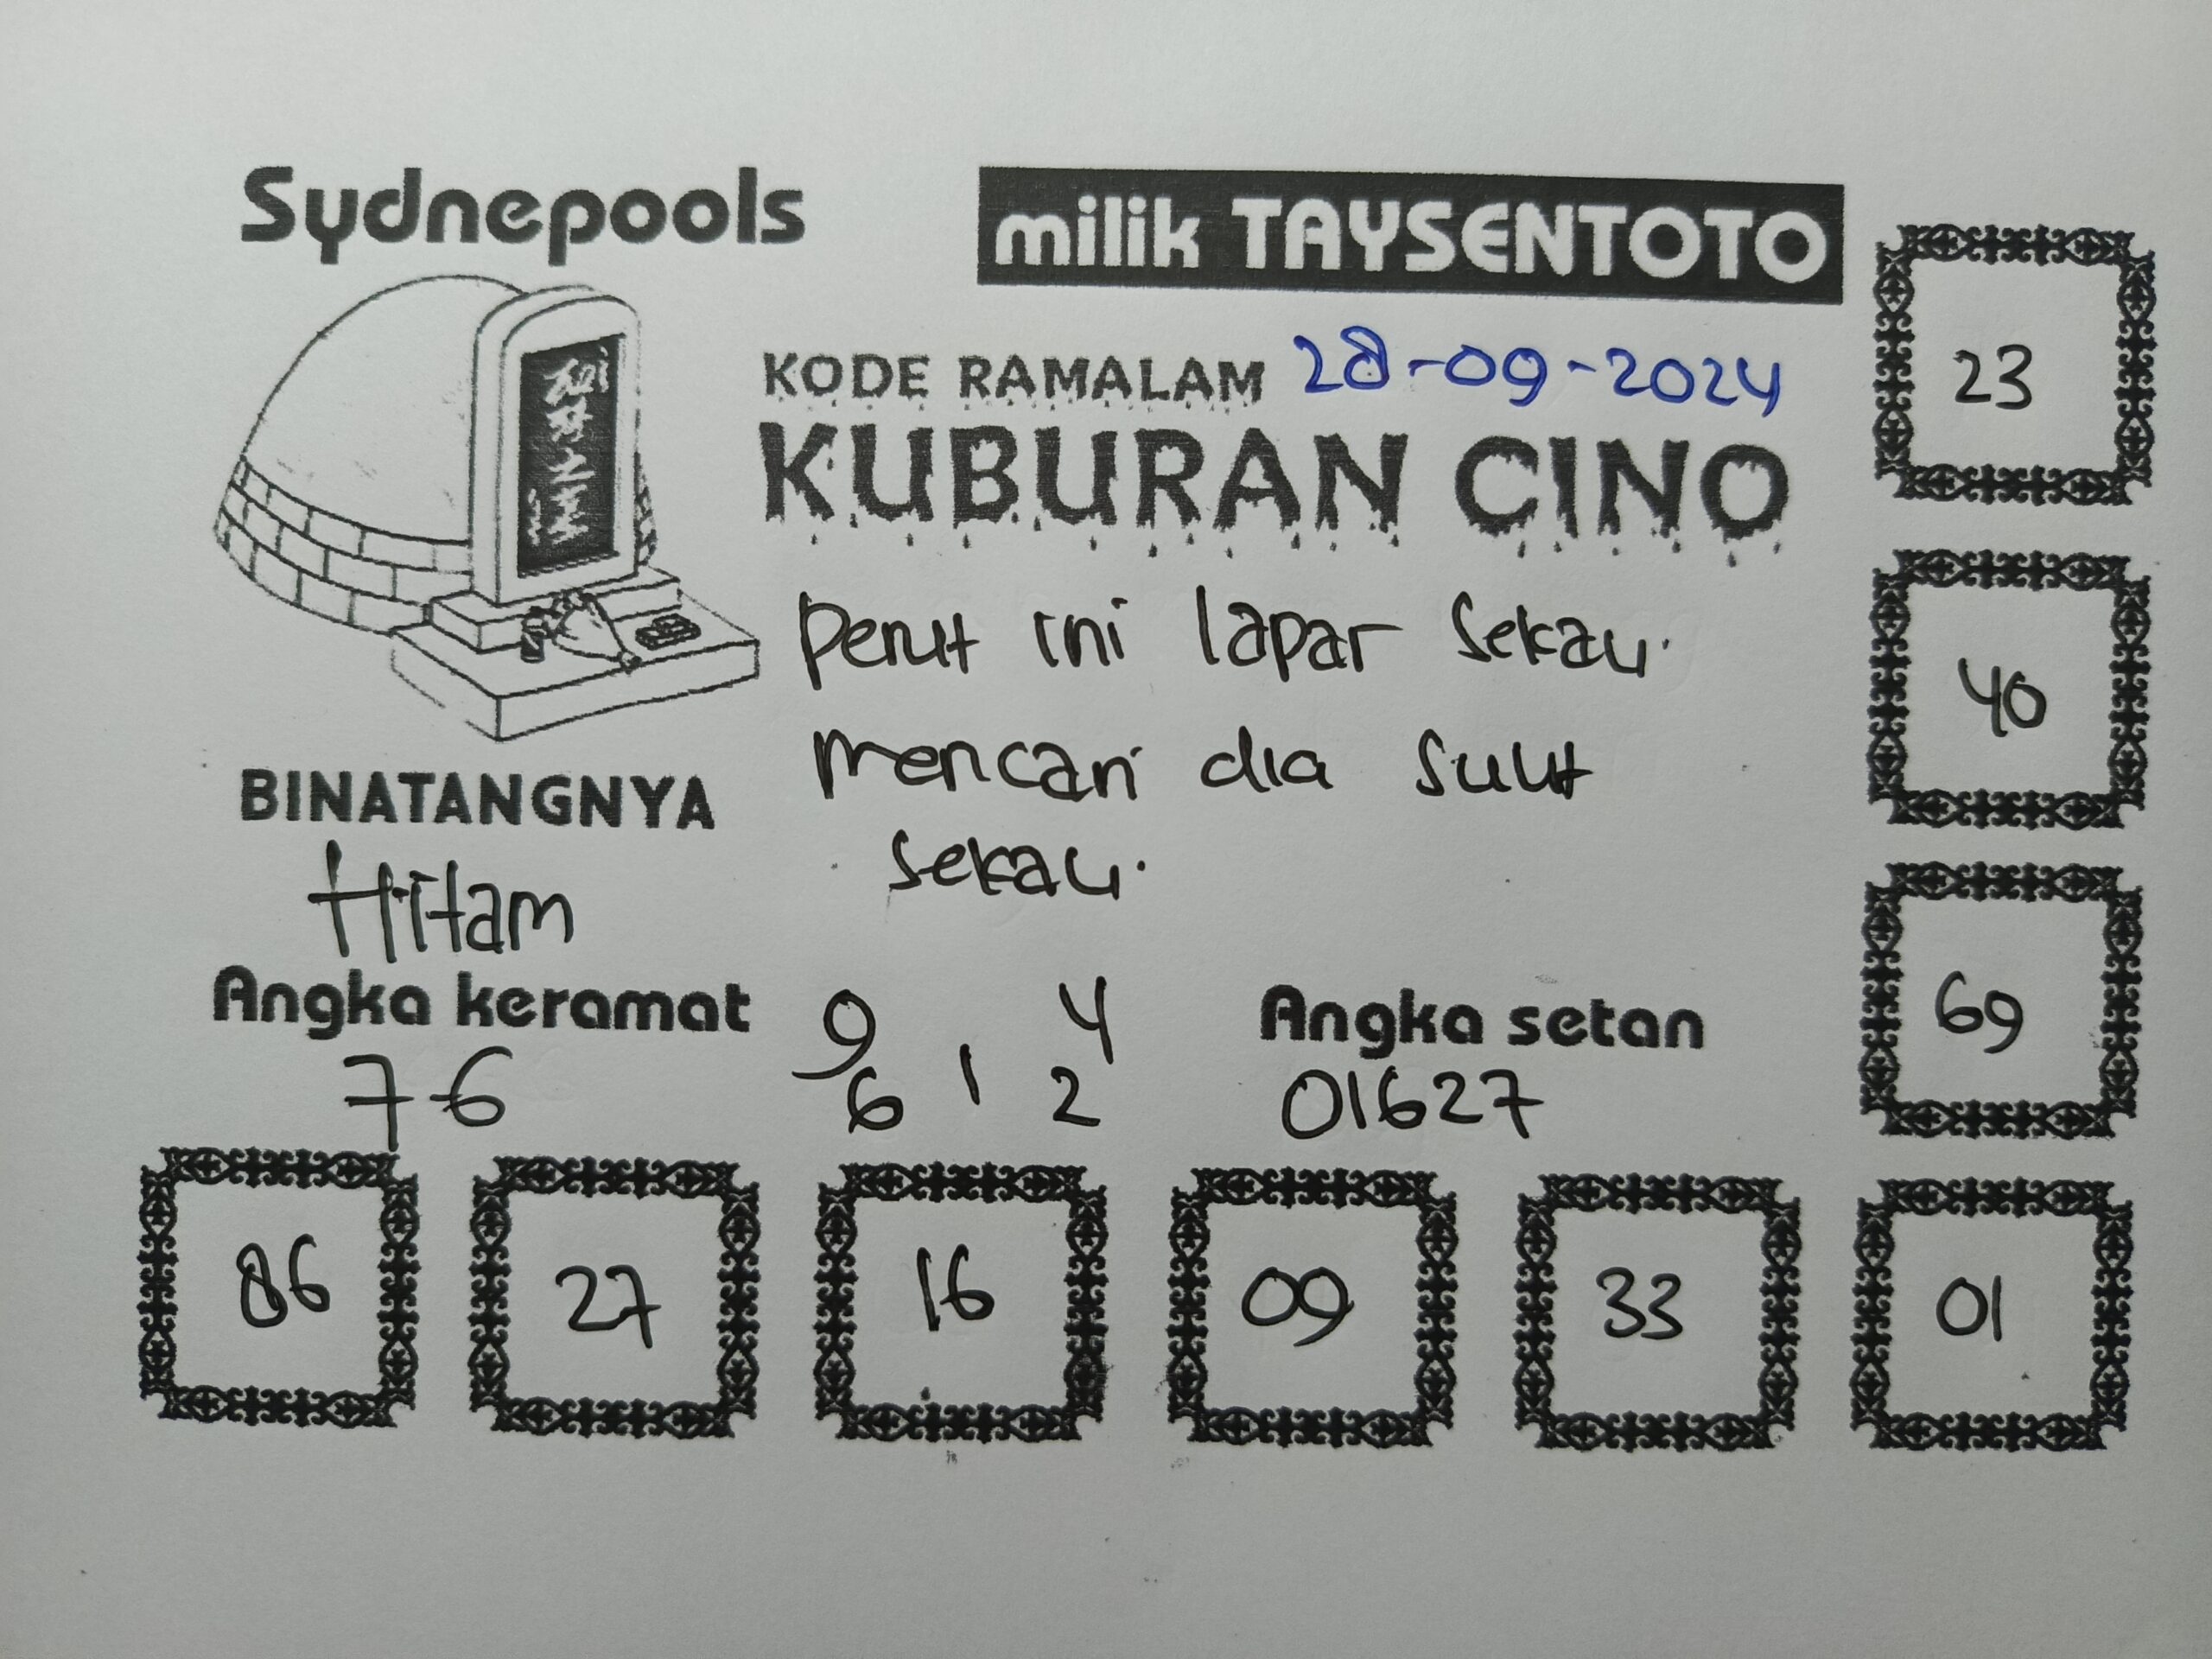 Sydnepools
milik TAYSENTOTO
KODE RAMALAM 28-09-2024
KUBURAN CINO
perut ini lapar sekali.
mencari dia sulit
sekali.
BINATANGNYA
Hitam
Angka keramat
7-6
9 4
6 1 2
Angka setan
01627
23
40
69
86 27 16 09 33 01